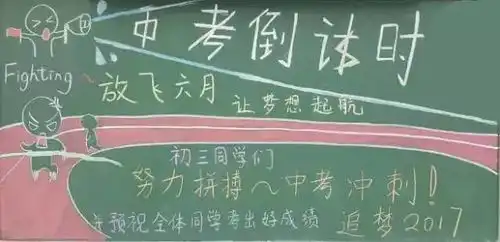 中考倒计时
Fighting~
放飞六月
让梦想起航
初三同学们
努力拼搏~中考冲刺!
并预祝全体同学考出好成绩
追梦2017